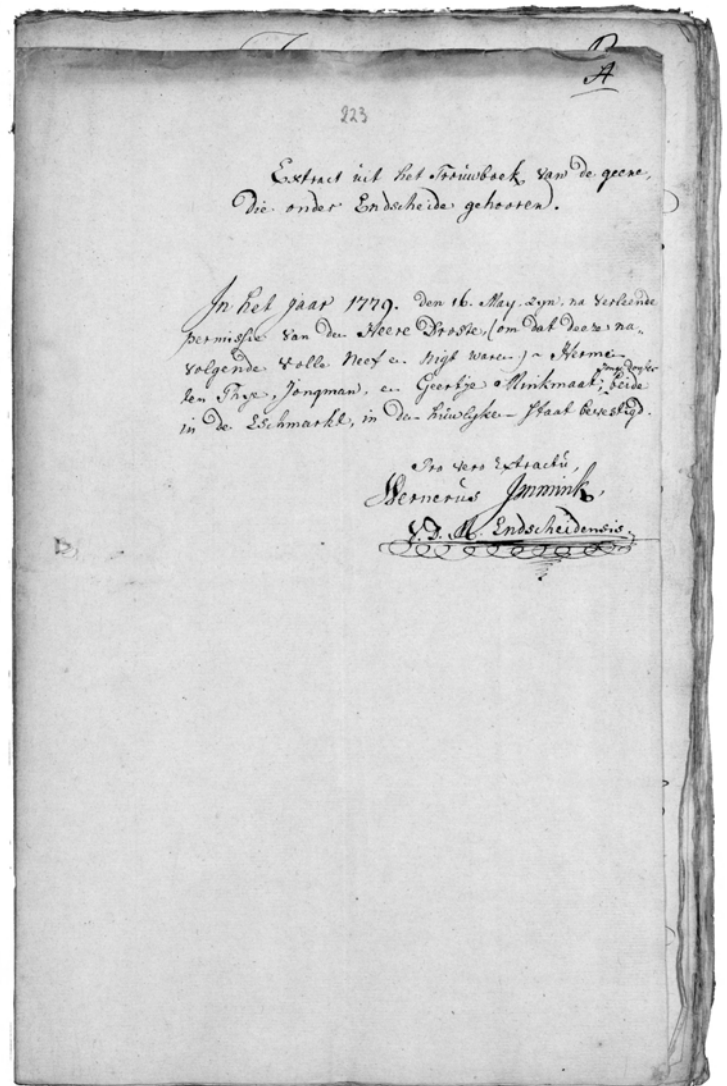 A
223
Extract uit het Trouwboek van de geene,
die onder Endscheide gehooren.
In het jaar 1779. den 16. May. zyn, na verleende
permissie van den Heere Droste, (om dat deeze na-
volgende volle Neef en Nigt waren) - Herme
ten Thye, Jongman, en Geertje Minkmaat, jonge dogter beide
in de Eschmarkt, in den huwlyken Staat bevestigd.
Pro vero Extractu,
Wernerus Jmmink,
V. D. M. Endscheidensis.